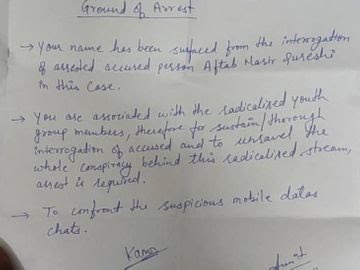 Ground of Arrest
→ Your name has been surfaced from the interrogation
of arrested accused person Aftab Nasir Qureshi
in this case.
→ You are associated with the radicalised youth
group members, therefore for sustain/thorough
interrogation of accused and to unravel the
whole conspiracy behind this radicalised stream,
arrest is required.
→ To confront the suspicious mobile datas
chats.